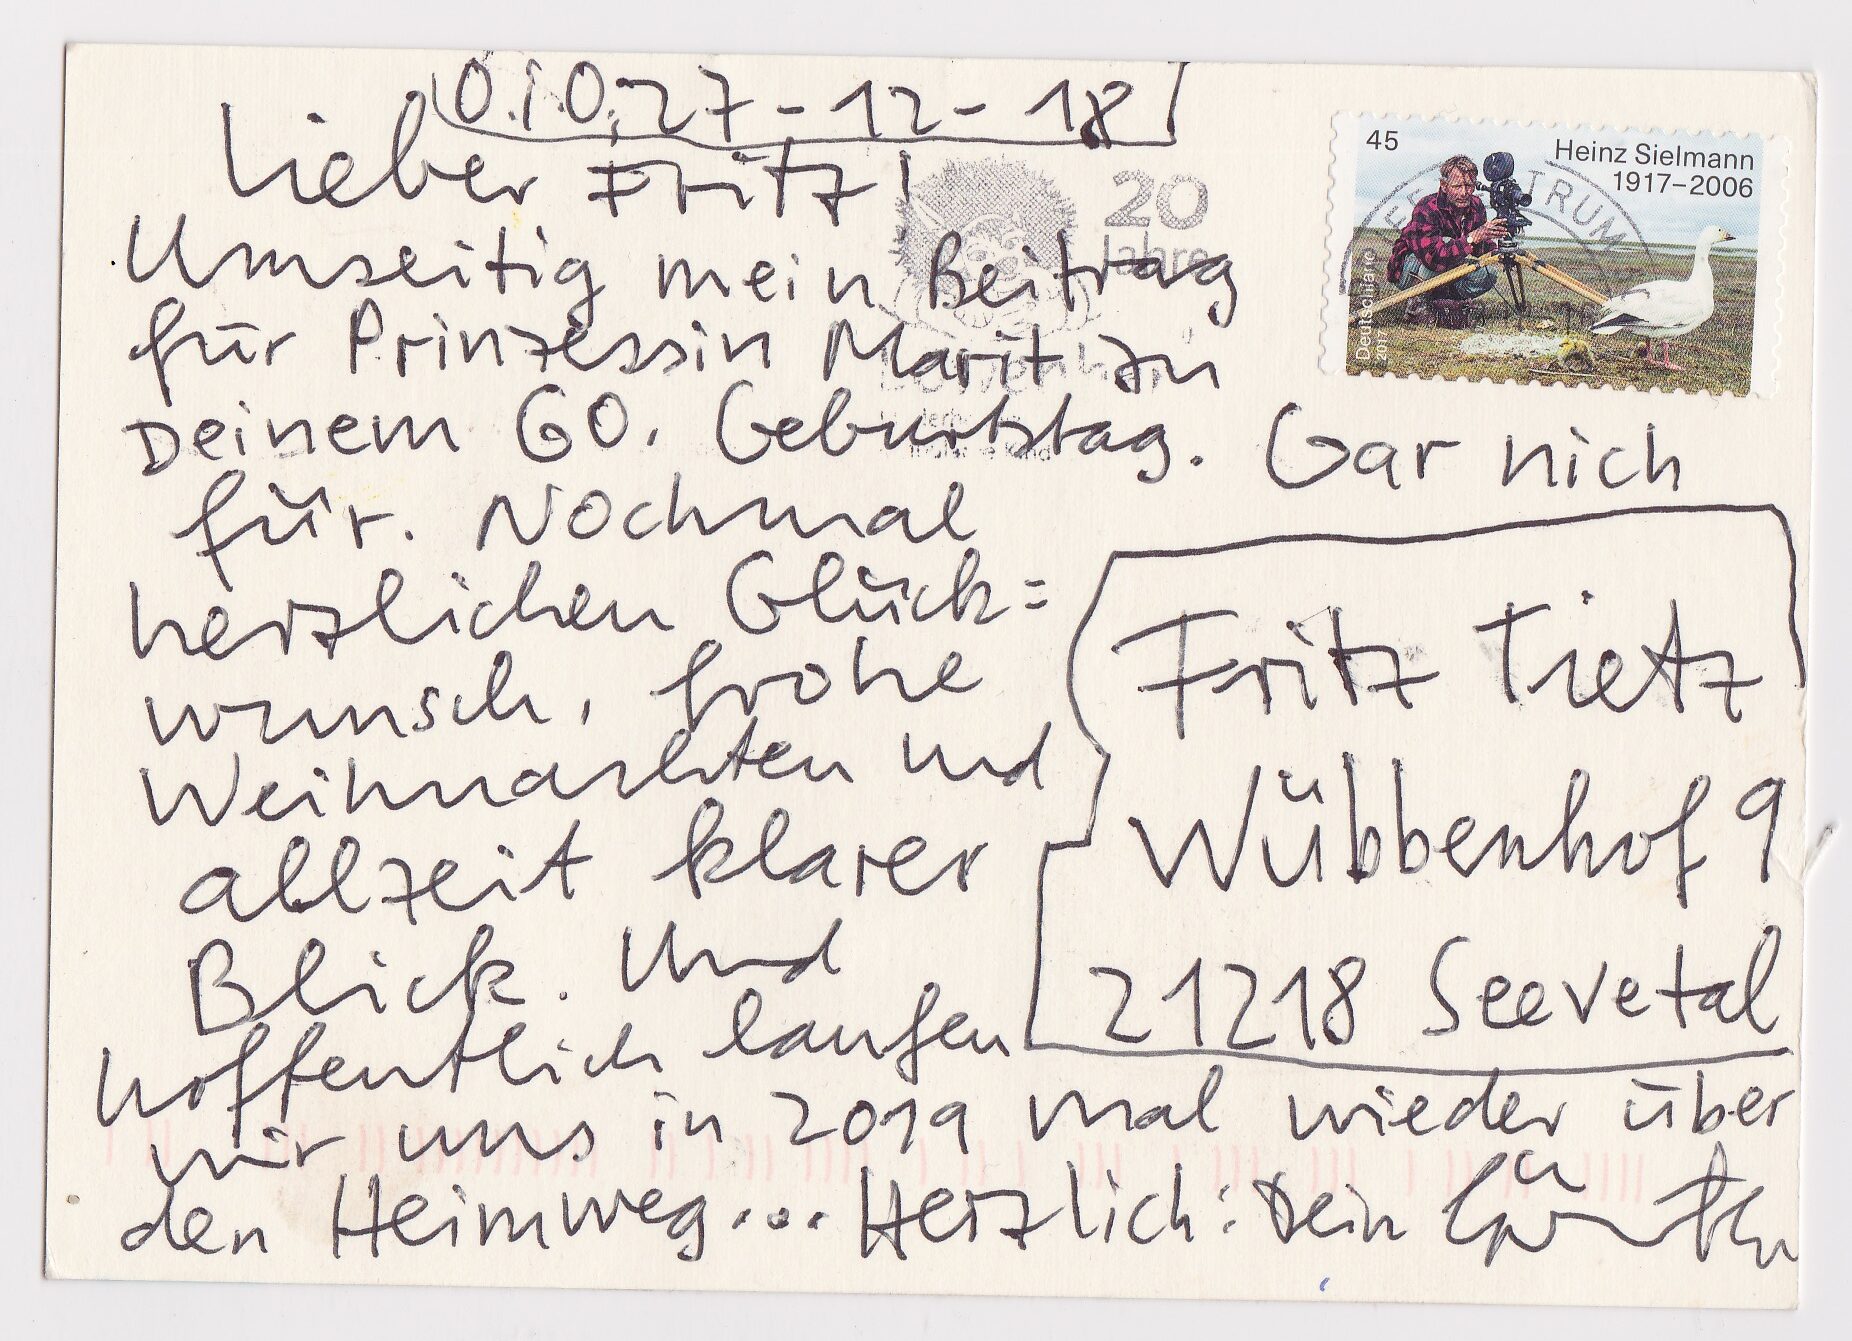 O.i.O., 27-12-18
Lieber Fritz!
Umseitig mein Beitrag
für Prinzessin Marit zu
Deinem 60. Geburtstag. Gar nich
für. Nochmal
herzlichen Glück=
wunsch, frohe
Weihnachten und
allzeit klarer
Blick. Und
hoffentlich laufen
wir uns in 2019 mal wieder über
den Heimweg... Herzlich: Dein
Fritz Tietz
Wübbenhof 9
21218 Seevetal
45
Heinz Sielmann
1917–2006
Deutschland
2017
20
Jahre